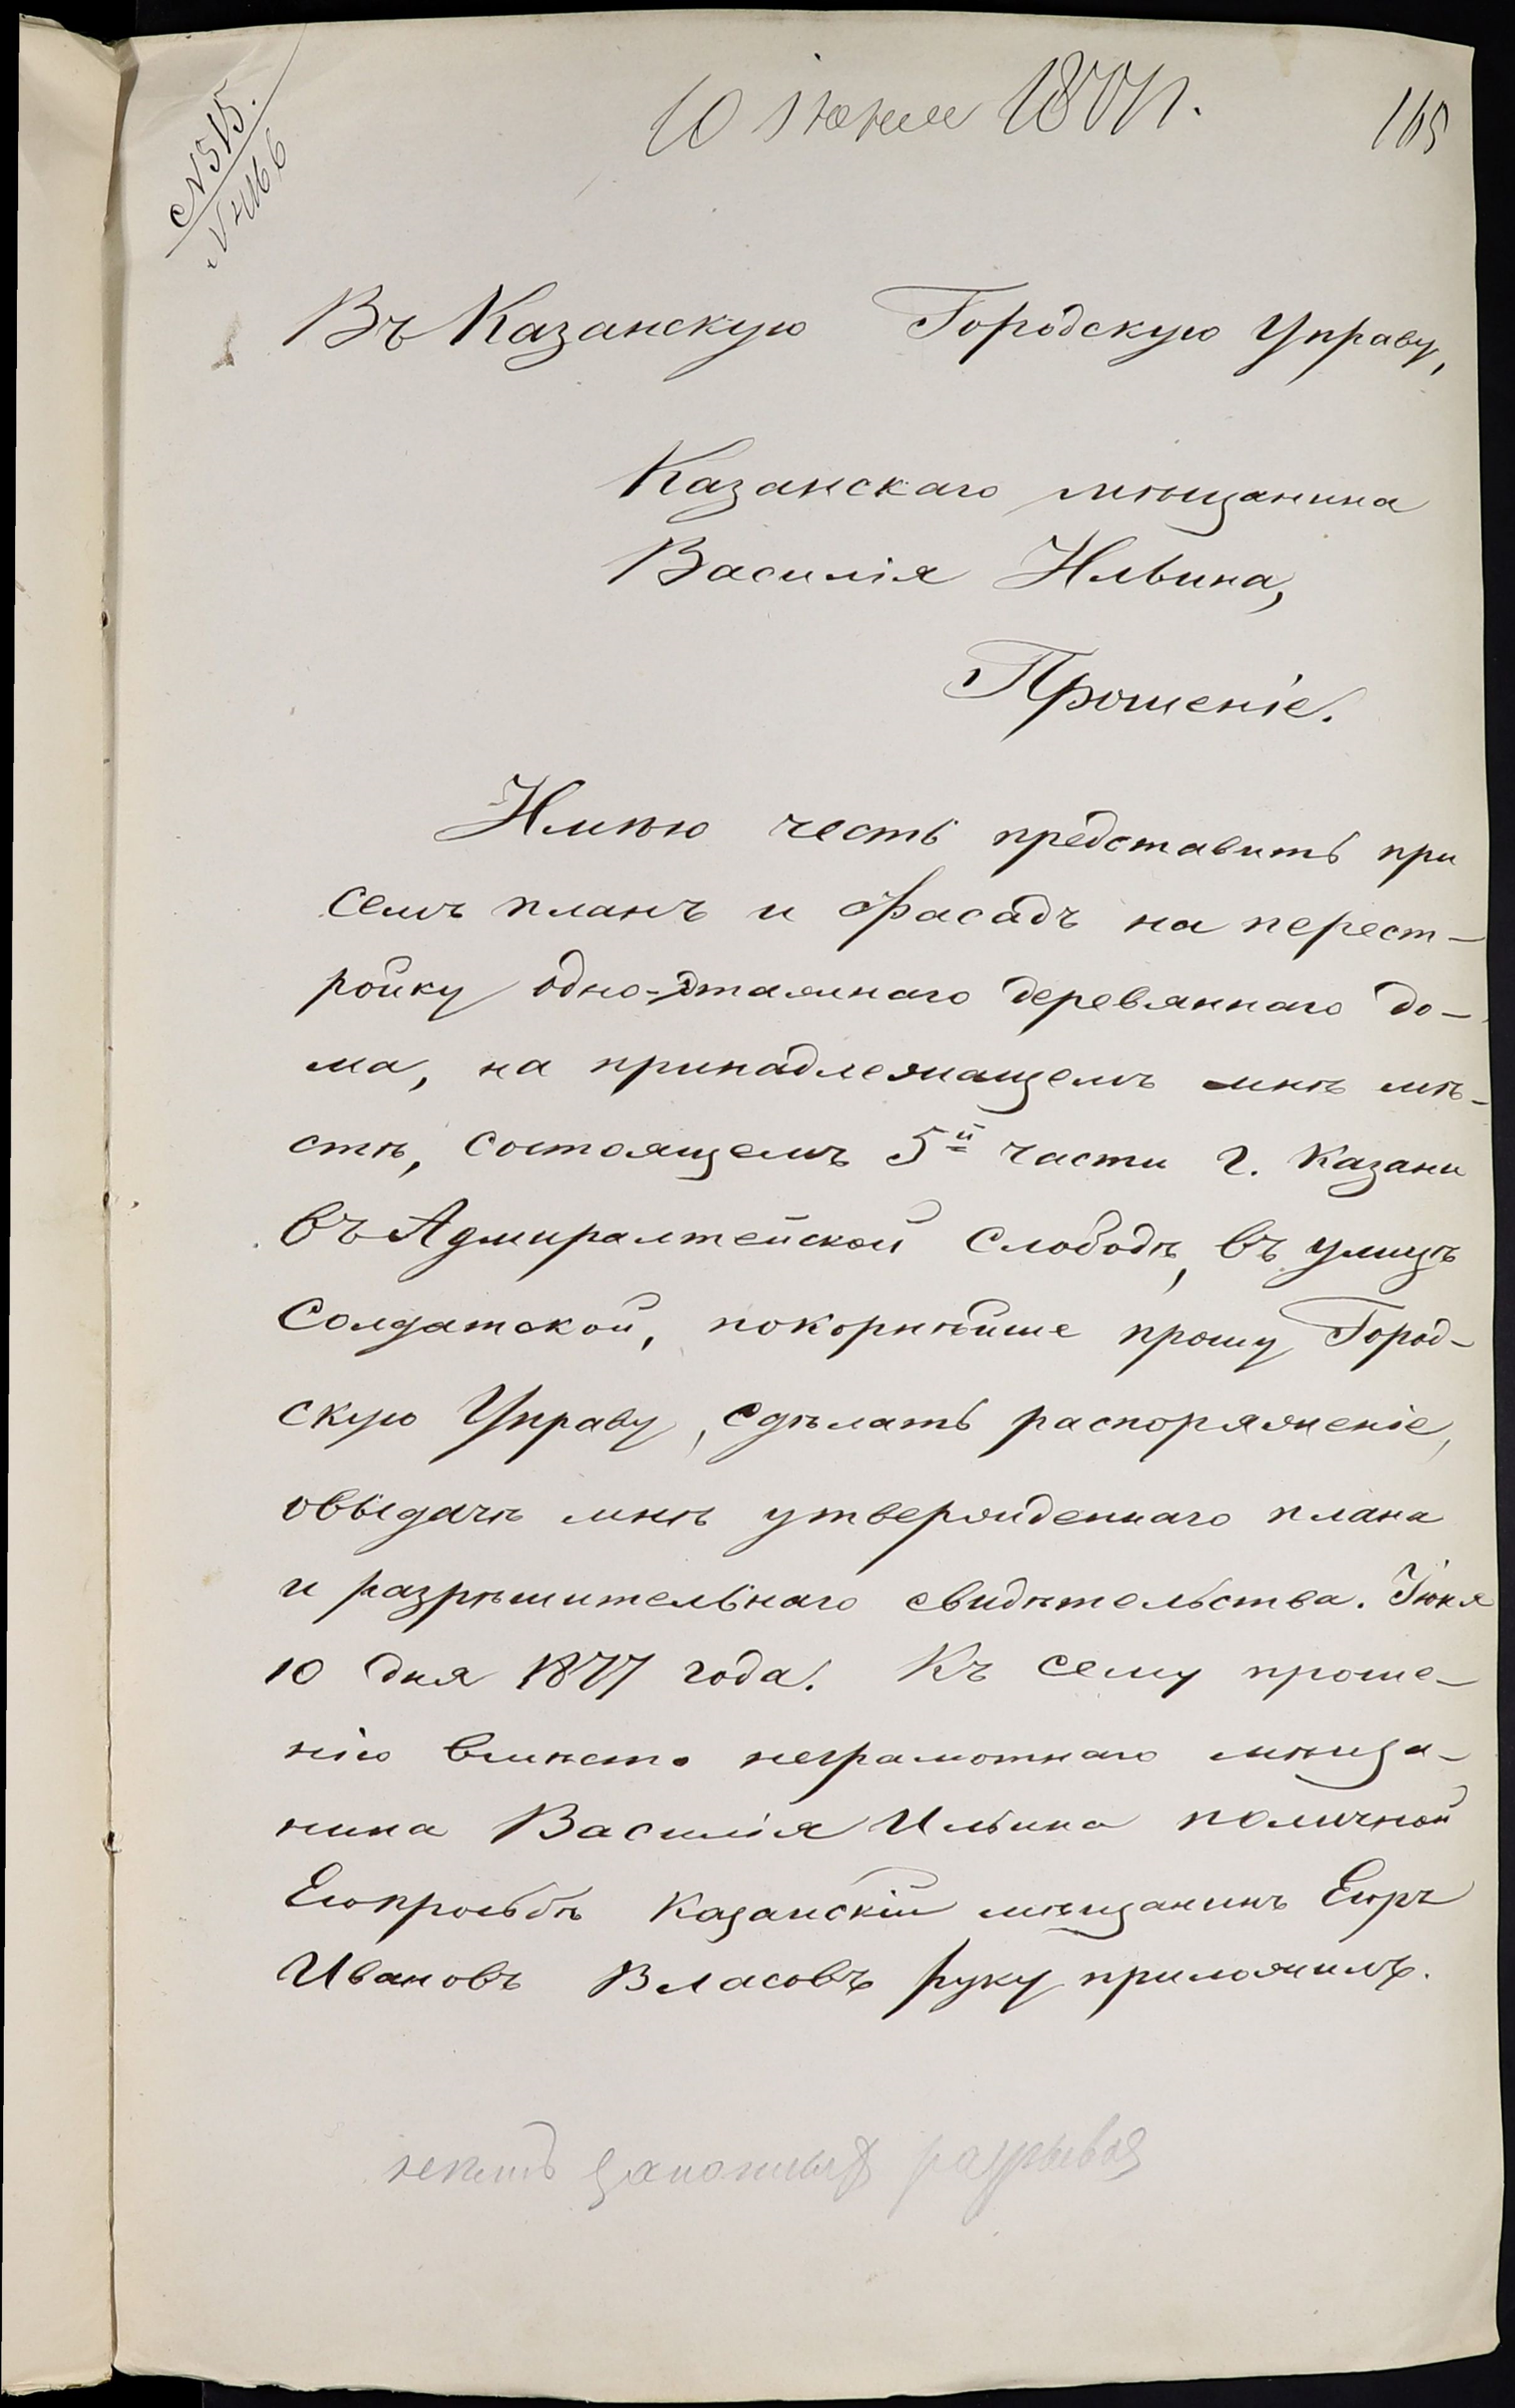 10 Іюня 1877 г.
165
№ 515.
№ 4166
Въ Казанскую Городскую Управу,
Казанскаго мѣщанина
Василія Ильина,
Прошеніе.
Имѣю честь представить при
семъ планъ и фасадъ на перест-
ройку одно-этажнаго деревяннаго до-
ма, на принадлежащемъ мнѣ мѣ-
стѣ, состоящемъ 5й части г. Казани
въ Адмиралтейской слободѣ, въ улицѣ
Солдатской, покорнѣйше прошу Город-
скую Управу, сдѣлать распоряженіе,
овыдачѣ мнѣ утвержденнаго плана
и разрѣшительнаго свидѣтельства. Іюня
10 дня 1877 года. Къ сему проше-
нію вмѣсто неграмотнаго мѣща-
нина Василія Ильина поличной
Егопросьбѣ Казанскій мѣщанинъ Егоръ
Ивановъ Власовъ руку приложилъ.